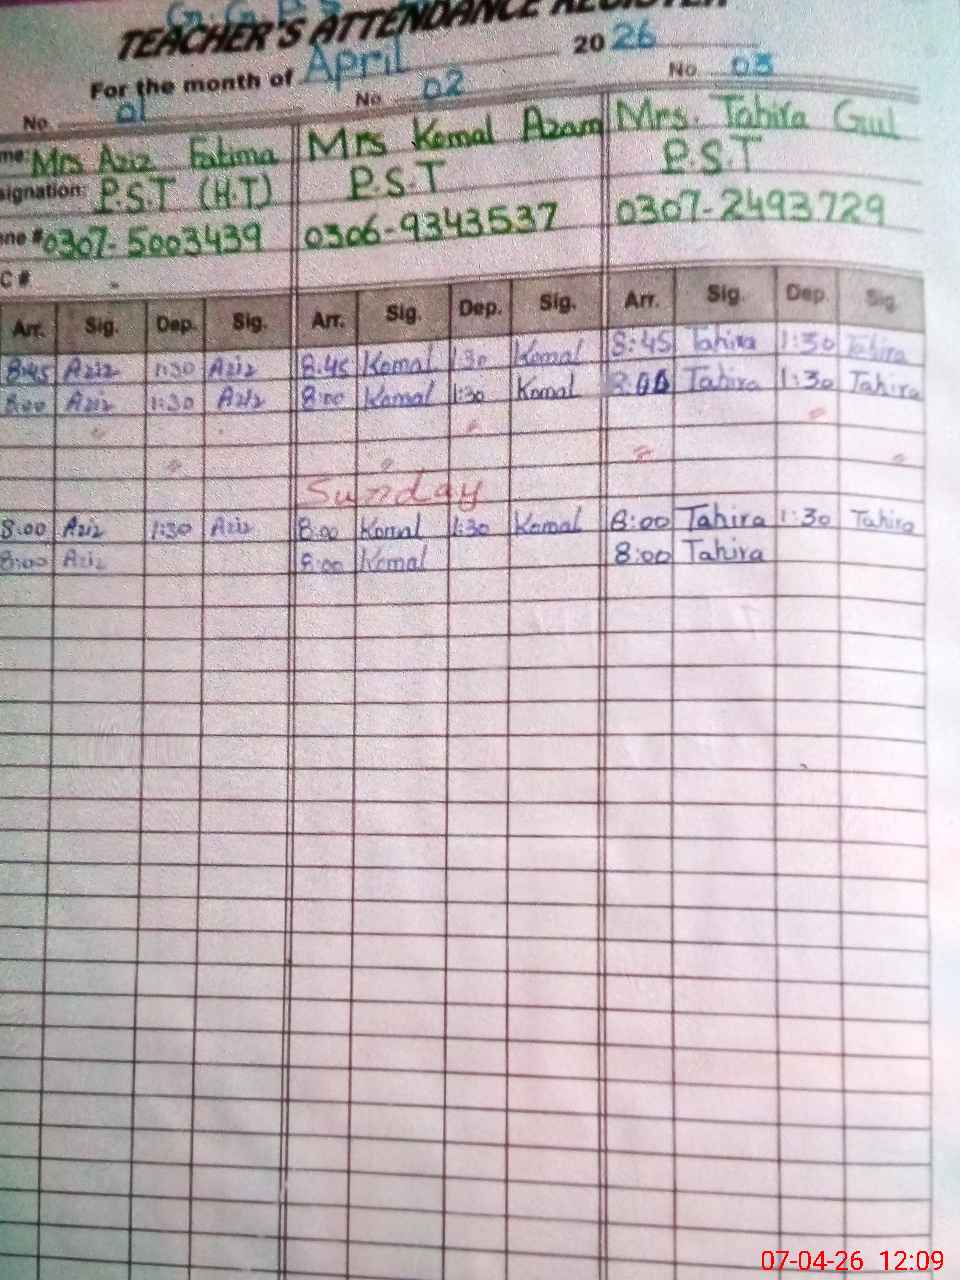 TEACHER'S ATTENDANCE REGISTER
For the month of April 2026
No. 01 No 02 No 03
me: Mrs Aziz Fatima Mrs Komal Azam Mrs. Tahira Gul
signation: P.S.T (H.T) P.S.T P.S.T
one # 0307-5003439 0306-9343537 0307-2493729
C #
Arr. Sig. Dep. Sig. Arr. Sig. Dep. Sig. Arr. Sig. Dep. Sig.
8:45 Aziz 1:30 Aziz 8:45 Komal 1:30 Komal 8:45 Tahira 1:30 Tahira
8:00 Aziz 1:30 Aziz 8:00 Komal 1:30 Komal 8:00 Tahira 1:30 Tahira
Sunday
8:00 Aziz 1:30 Aziz 8:00 Komal 1:30 Komal 8:00 Tahira 1:30 Tahira
8:00 Aziz 8:00 Komal 8:00 Tahira
07-04-26 12:09